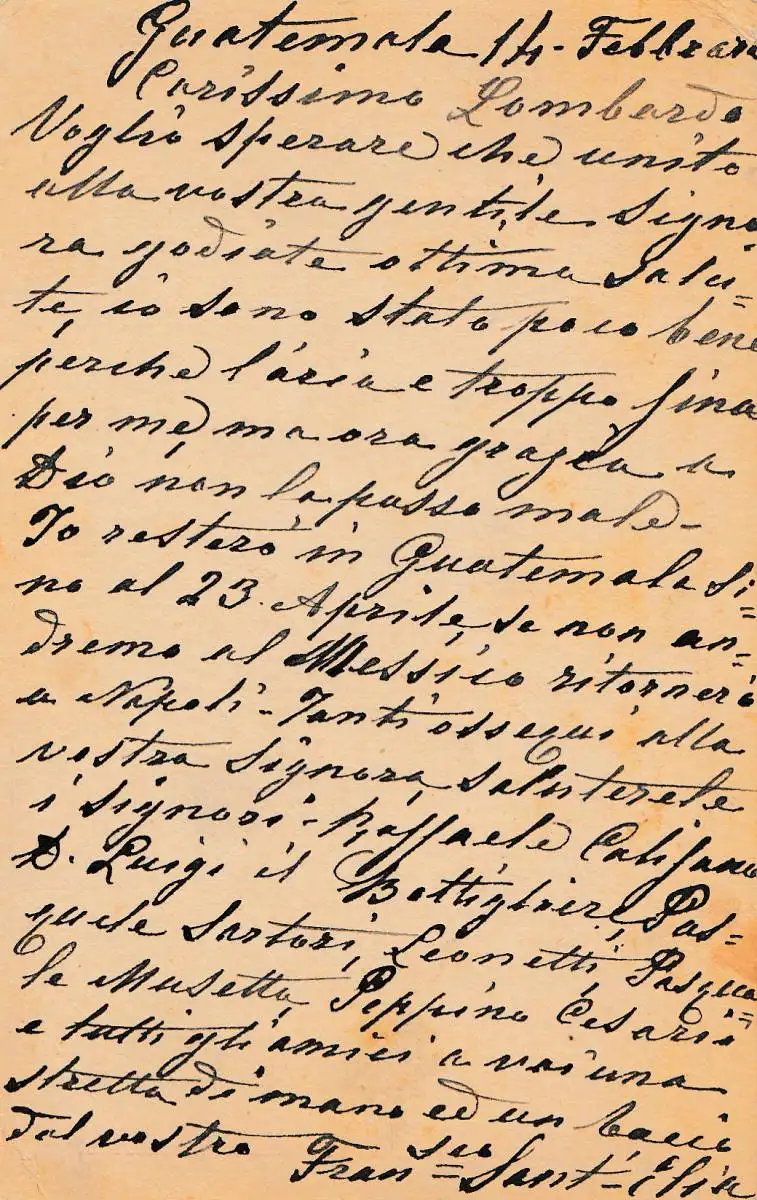 Guatemala 14 - Febbraro
Carissimo Lombardo
Voglio sperare che unito
alla vostra gentile Signo
ra godiate ottima salu=
te, io sono stato poco bene
perche l'aria e troppo fina
per me, ma ora grazia a
Dio non la passo male-
Io resterò in Guatemala si=
no al 23. Aprile, se non an=
dremo al Messico ritornerò
a Napoli - Tanti ossequi alla
vostra Signora, saluterete
i signori - Raffaele Califano
D. Luigi il Bottigliere, Pas=
quale Sartori, Leonetti, Pasqua=
le Musetta, Peppino Cesario
e tutti gli amici a voi una
stretta di mano ed un bacio
dal vostro Fran=sco Sant-Elia